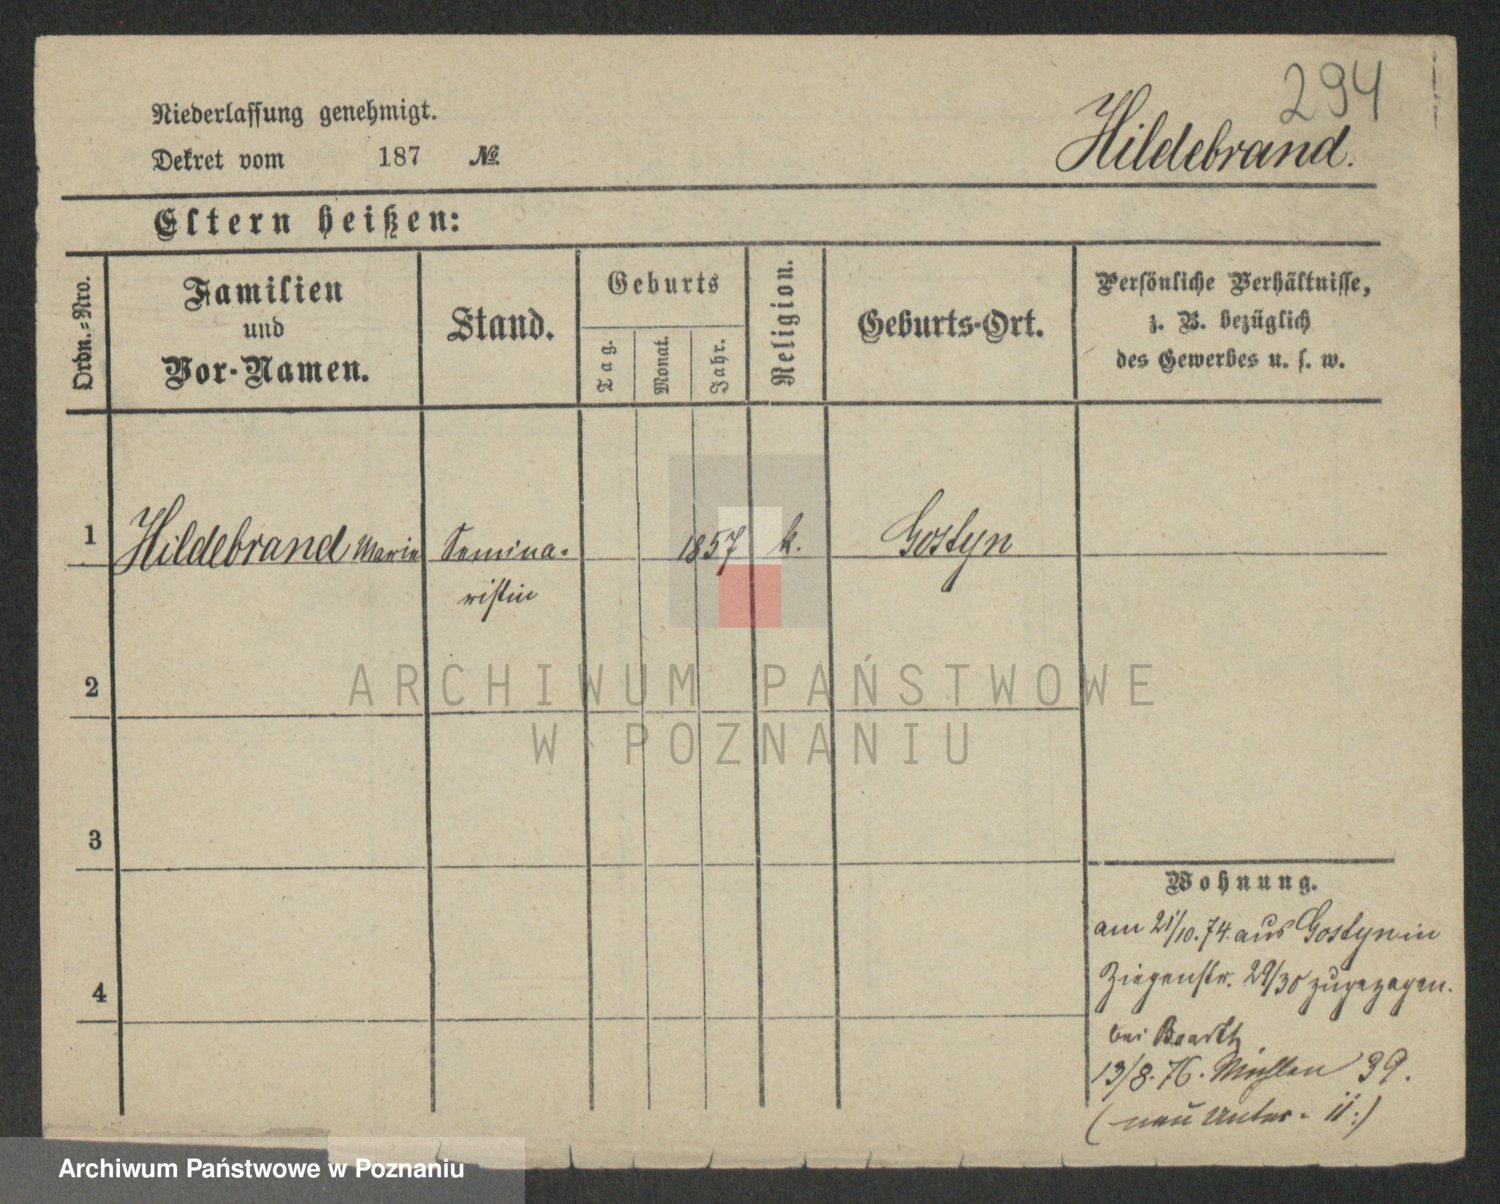 294
Niederlassung genehmigt.
Hildebrand.
Dekret vom 187 №
Eltern heißen:
Ordn.=Nro.
Familien
und
Vor-Namen.
Stand.
Geburts
Tag.
Monat.
Jahr.
Religion.
Geburts-Ort.
Persönliche Verhältnisse,
z. B. bezüglich
des Gewerbes u. s. w.
1 Hildebrand Marie Semina= 1857 k. Gostyn
ristin
2
ARCHIWUM PAŃSTWOWE
W POZNANIU
3
Wohnung.
am 21/10.74. aus Gostyn in
Ziegenstr. 29/30 zugezogen.
4
bei
13/8.76. Mühlen 39.
Archiwum Państwowe w Poznaniu